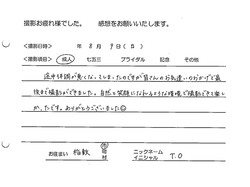 撮影お疲れ様でした。 感想をお願いいたします。
<撮影日時> 年 8 月 9 日 (日)
<撮影項目> 成人 七五三 ブライダル 記念 その他
途中体調が悪くなってしまったのですが皆さんのお気遣いのおかげで最
後まで撮影ができました。自然と笑顔になれるような環境で撮影できて楽し
かったです。ありがとうございました
お住まい 稲敷 市 町 村 ニックネーム イニシャル T.O